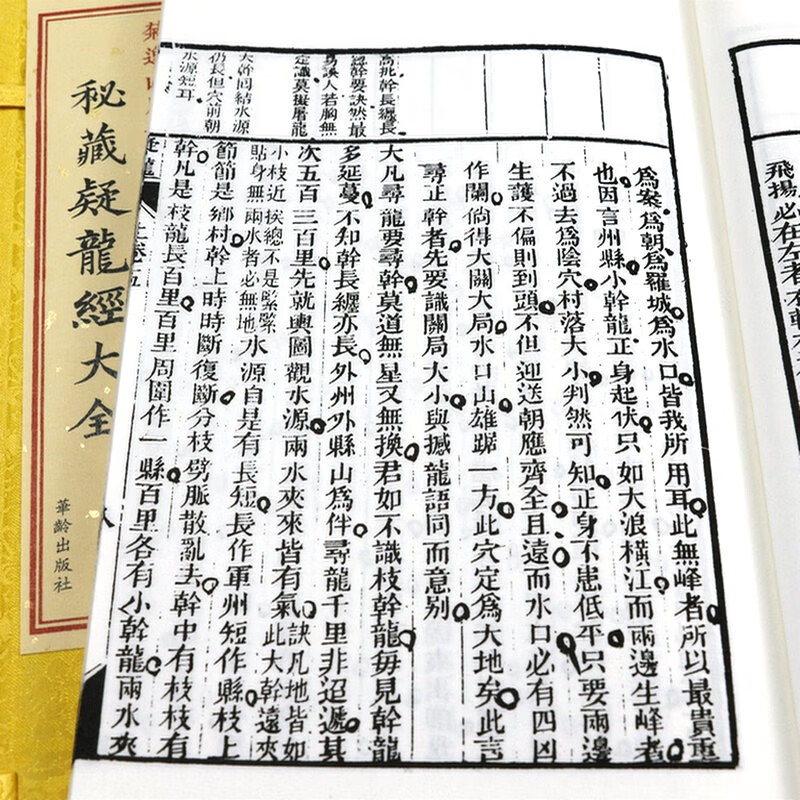 爲案爲朝爲羅城爲水口皆我所用耳此無峰者所以最貴重
也因言州縣小幹龍正身起伏只如大浪橫江而兩邊生峰者
不過去爲陰穴村落大小判然可知正身不患低平只要兩邊
生護不偏則到頭不但迎送朝應齊全且遠而水口必有四凶
作關倘得大關大局水口山雄踞一方此穴定爲大地矣此言
尋正幹者先要識關局大小與撼龍語同而意別
大凡尋龍要尋幹莫道無星又無換君如不識枝幹龍每見幹龍
多延蔓不知幹長纏亦長外州外縣山爲伴尋龍千里非迢遞其
次五百三百里先就輿圖觀水源兩水夾來皆有氣訣凡地皆如此大幹遠夾
小枝近挨總不是緊緊貼身無兩水者必無地水源自是有長短長作軍州短作縣枝上
節節是鄉村幹上時時斷復斷分枝劈脈散亂去幹中有枝枝有
幹凡是枝龍長百里百里周圍作一縣百里各有小幹龍兩水夾
高批幹長纏長
尋幹要訣然最
易誤人若胸無
定識莫擬屠龍
大幹同結水源
仍長但穴前朝
水源短耳
疑龍
上卷
五
飛揚必在左者
秘藏疑龍經大全
華齡出版社